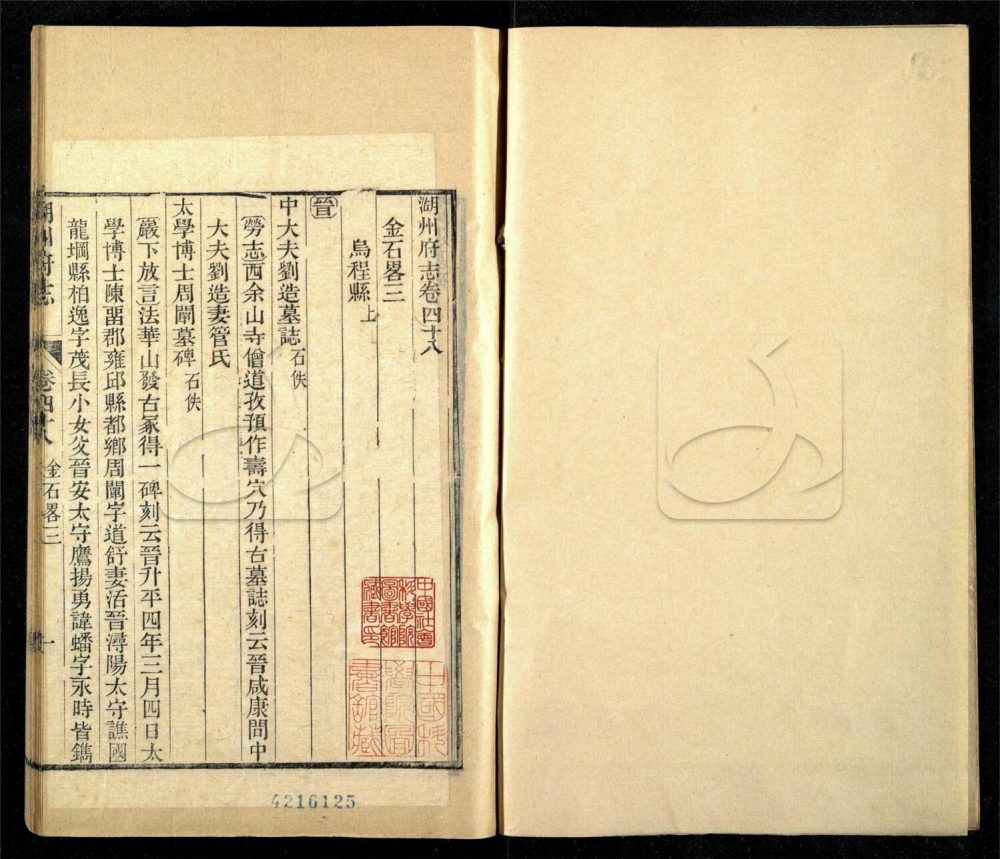 湖州府志卷四十八
金石畧三
烏程縣上
晉
中大夫劉造墓誌石佚
勞志西余山寺僧道孜預作壽穴乃得古墓誌刻云晉咸康間中
大夫劉造妻管氏
太學博士周闡墓碑石佚
嚴下放言法華山發古冢得一碑刻云晉升平四年三月四日太
學博士陳畱郡雍邱縣都鄉周闡字道舒妻活晉潯陽太守譙國
龍堈縣柏逸字茂長小女父晉安太守鷹揚勇諱蟠字永時皆鐫
湖州府志
卷四十八
金石畧三
一
中國社會
科學院
圖書館
藏書印
中國科
學院圖
書館藏
4216125